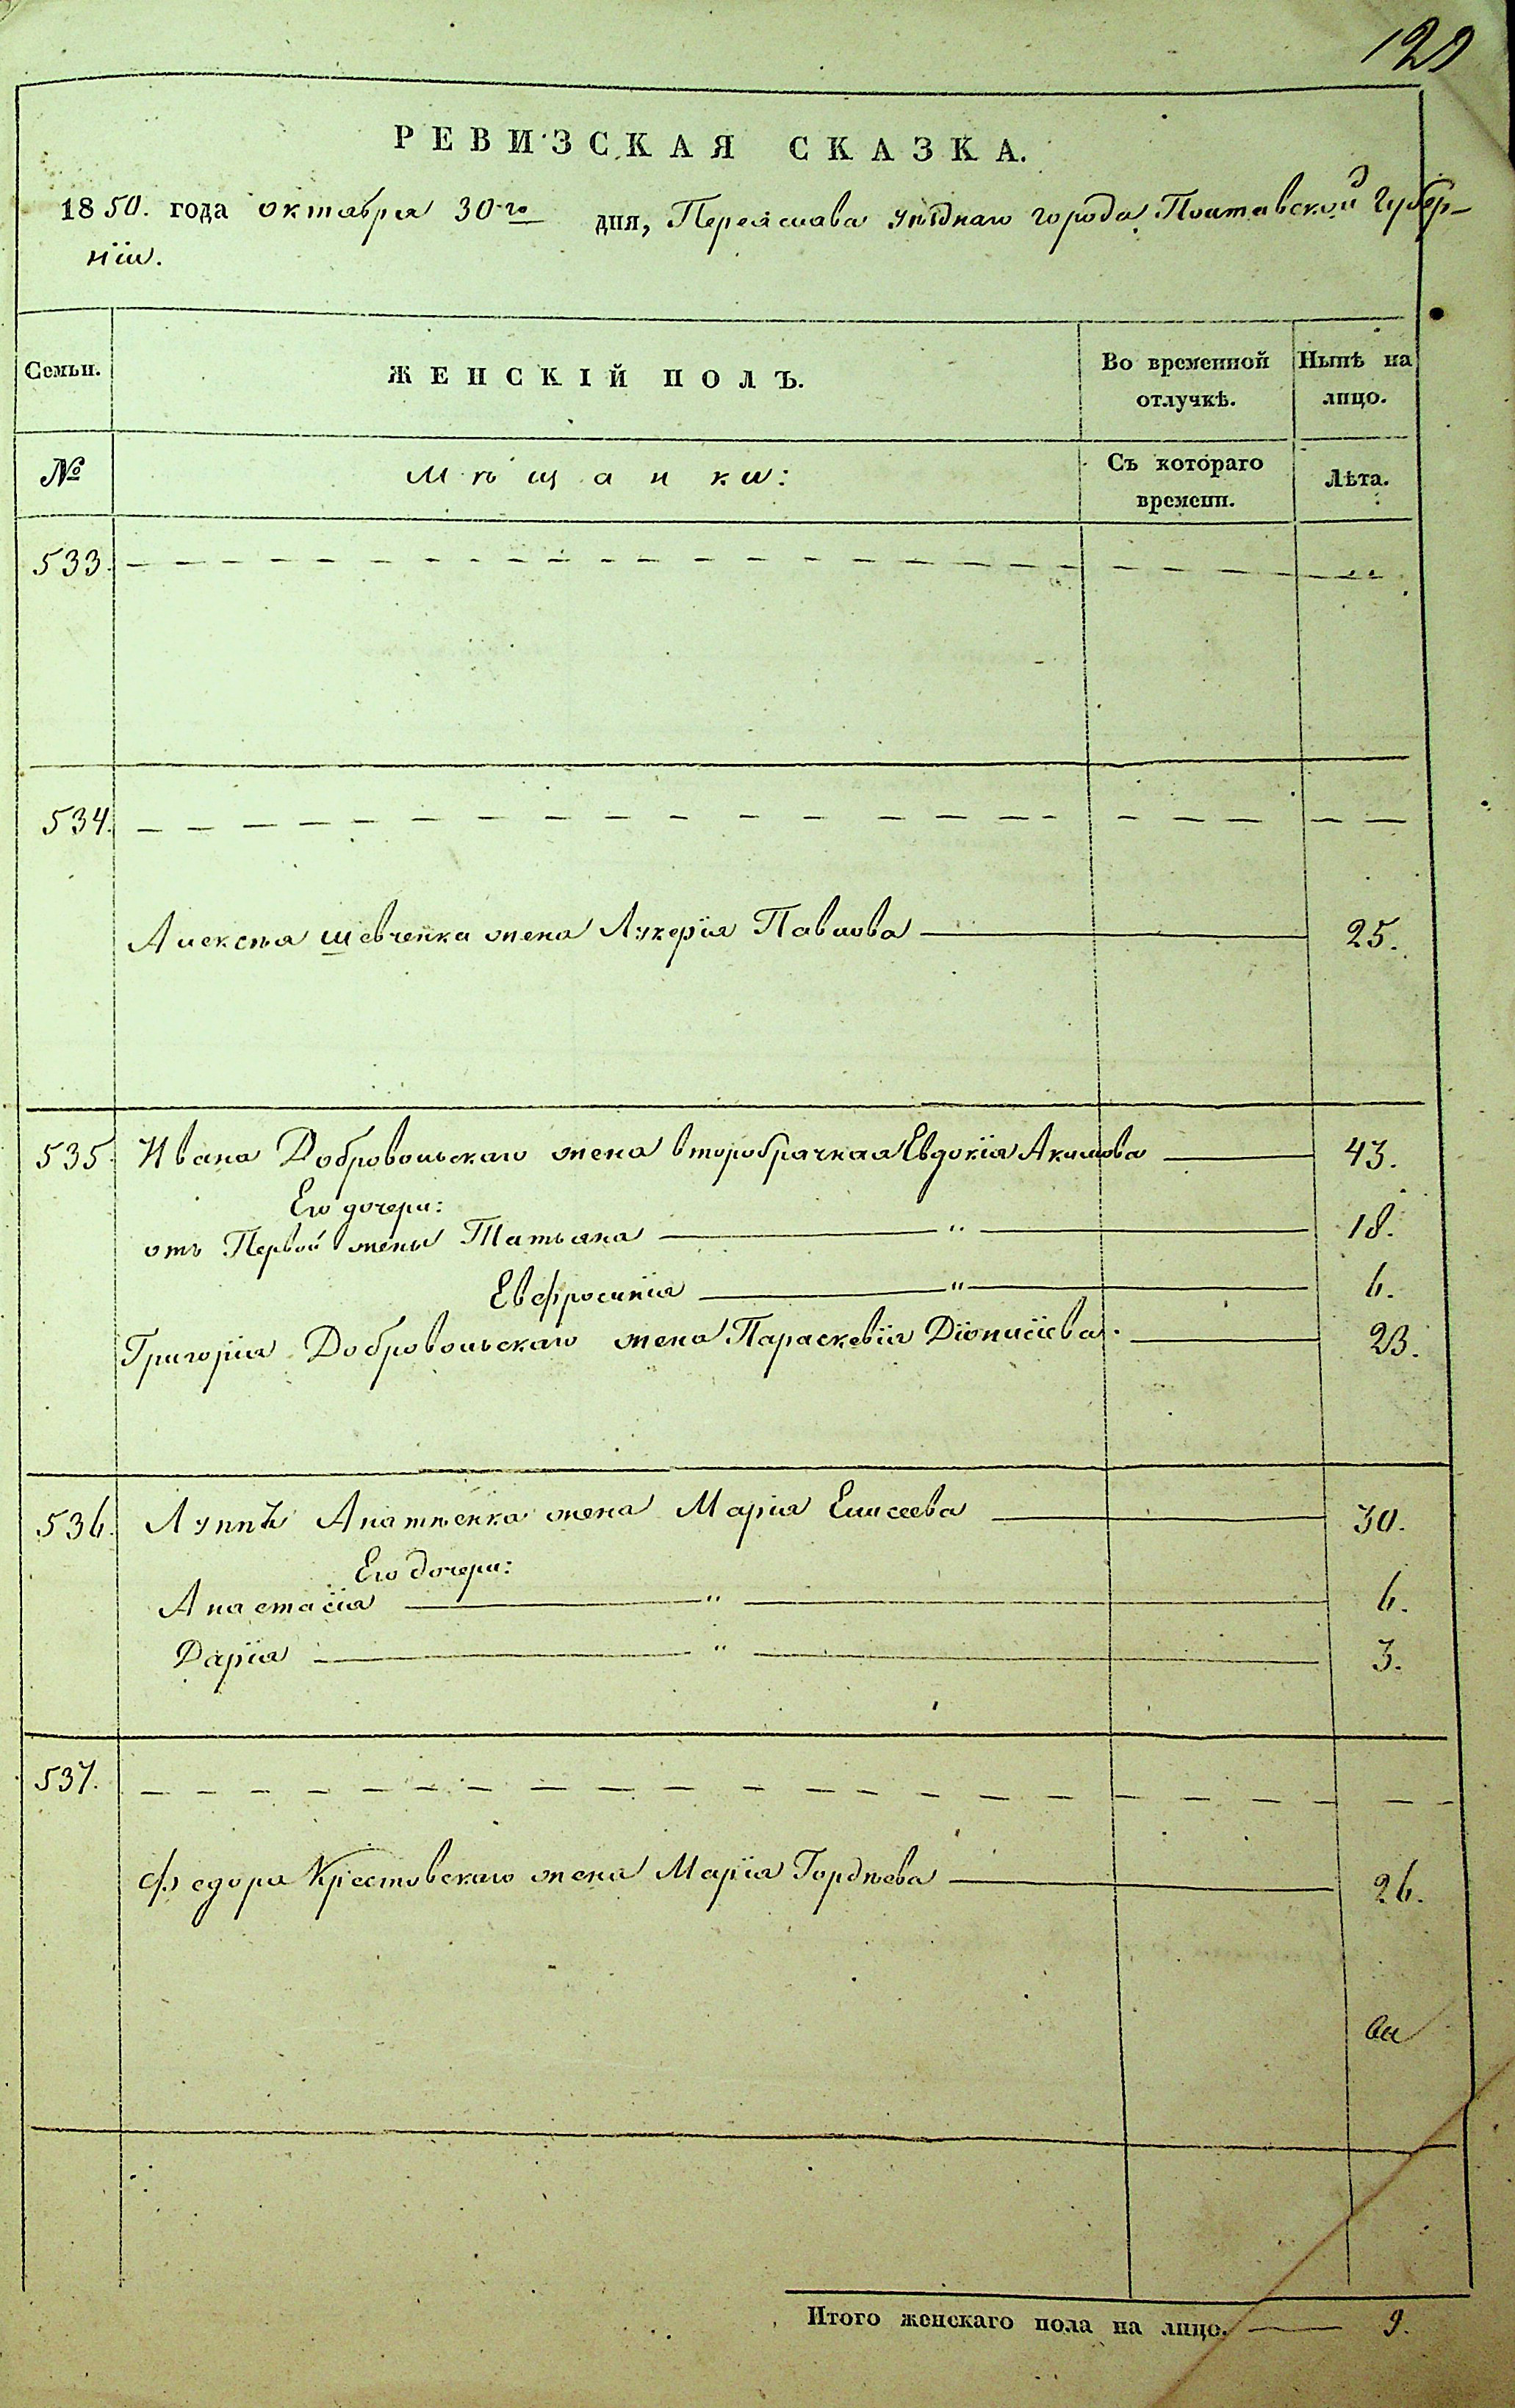 129
РЕВИЗСКАЯ СКАЗКА.
1850. года октября 30-го дня, Переяслава уѣзднаго города Полтавской Губер-
нiи.
Семьи.
ЖЕНСКІЙ ПОЛЪ.
Во временной отлучкѣ.
Нынѣ на лицо.
№
Мѣщанки:
Съ котораго времени.
Лѣта.
533.
534.
Алексѣя Шевченка жена Лукерія Павлова 25.
535. Ивана Добровольскаго жена второбрачная Евдокія Акимова 43.
Его дочери:
отъ Первой жены Татьяна " 18.
Евфросинія " 6.
Григорія Добровольскаго жена Параскевія Діонисіева. 23.
536. Марія Елисеева 30.
Его дочери:
Анастасія " 6.
Дарія " 3.
537.
Федора Крестовскаго жена Марія Гордѣева 26.
Итого женскаго пола на лицо. 9.